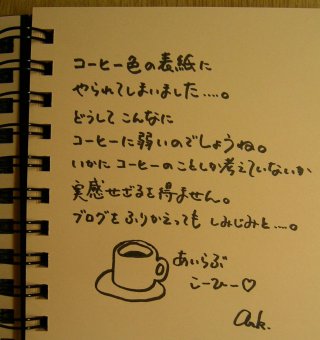 コーヒー色の表紙に
やられてしまいました.....。
どうしてこんなに
コーヒーに弱いのでしょうね。
いかにコーヒーのことしか考えていないか
実感せざるを得ません。
ブログをふりかえっても しみじみと....。
あいらぶ
こーひー♡